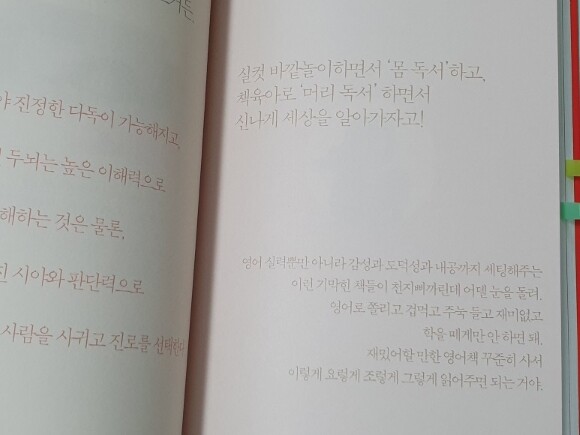 진정한 다독이 가능해지고,
두뇌는 높은 이해력으로
해하는 것은 물론,
시야와 판단력으로
사람을 사귀고 진로를 선택한다
실컷 바깥놀이하면서 '몸 독서'하고,
책육아로 '머리 독서' 하면서
신나게 세상을 알아가자고!
영어 실력뿐만 아니라 감성과 도덕성과 내공까지 세팅해주는
이런 기막힌 책들이 천지삐까린데 어델 눈을 돌려.
잉어로 쫄리고 겁먹고 주눅 들고 재미없고
학을 떼게만 안 하면 돼.
재밌어할 만한 영어책 꾸준히 사서
이렇게 요렇게 조렇게 그렇게 읽어주면 되는 거야.